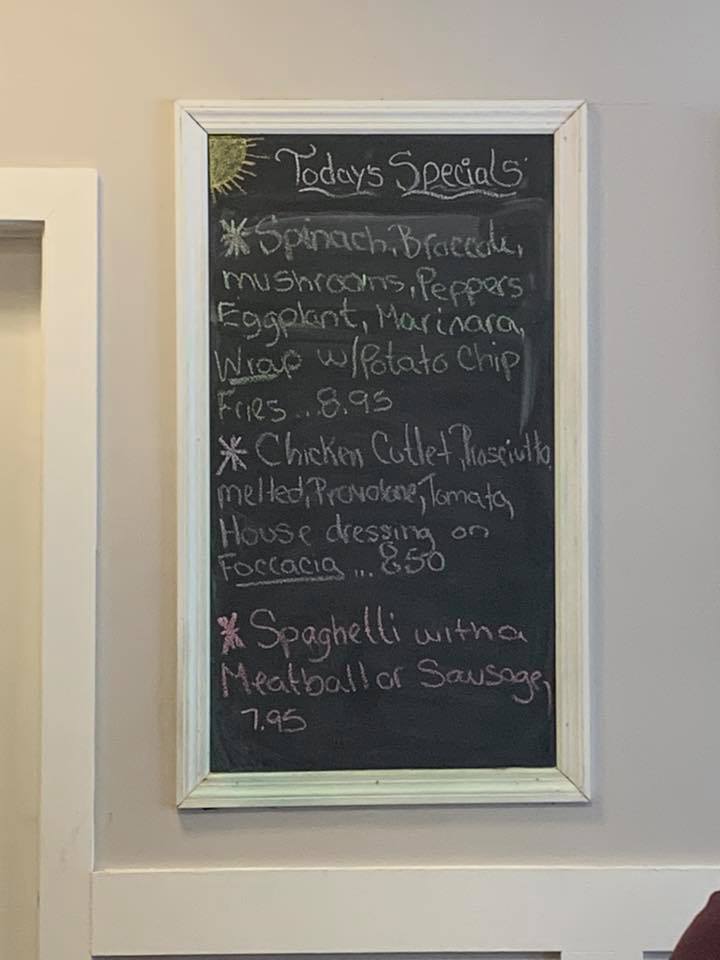 Todays Specials
* Spinach, Broccoli,
mushrooms, Peppers
Eggplant, Marinara,
Wrap w/Potato Chip
Fries...8.95
* Chicken Cutlet, Prosciutto,
melted, Provolone, Tomato,
House dressing on
Foccacia ... 8.50
* Spaghetti with a
Meatball or Sausage,
7.95